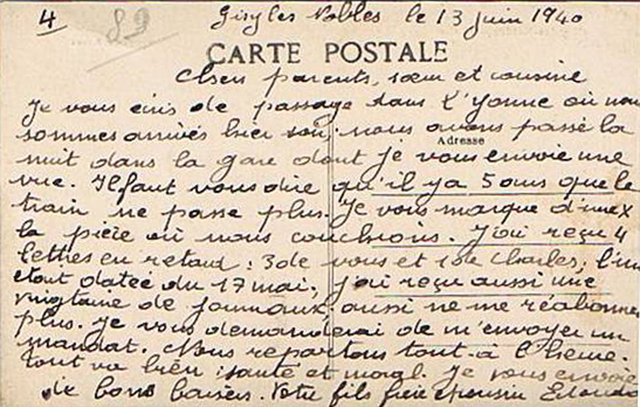 4 89 Gisy les Nobles le 13 juin 1940
CARTE POSTALE
Chers parents, sœur et cousine
Je vous écris de passage dans l'Yonne où nous
sommes arrivés hier soir; nous avons passé la
Adresse
nuit dans la gare dont je vous envoie une
vue. Il faut vous dire qu'il y a 5 ans que le
train ne passe plus. Je vous marque d'une X
la pièce où nous couchions. J'ai reçu 4
lettres en retard: 3 de vous et 1 de Charles; l'une
étant datée du 17 mai; j'ai reçu aussi une
vingtaine de journaux; aussi ne me réabonnez
plus. Je vous demanderai de m'envoyer un
mandat. Nous repartons tout à l'heure.
Tout va bien: santé et moral. Je vous envoie
de bons baisers. Votre fils frère cousin